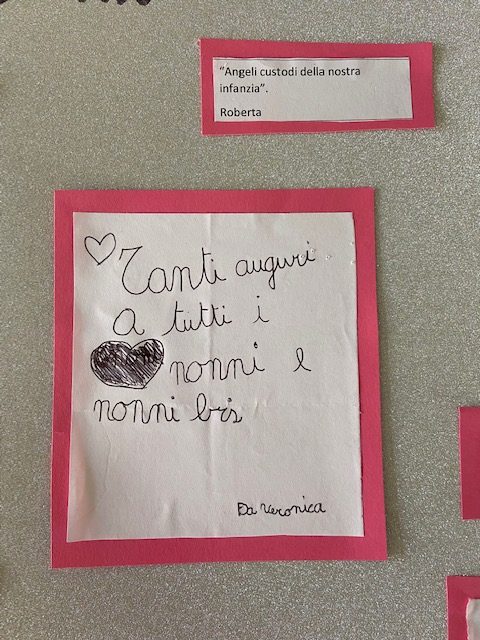 “Angeli custodi della nostra
infanzia”.
Roberta
Tanti auguri
a tutti i
nonni e
nonni bis
Da Veronica